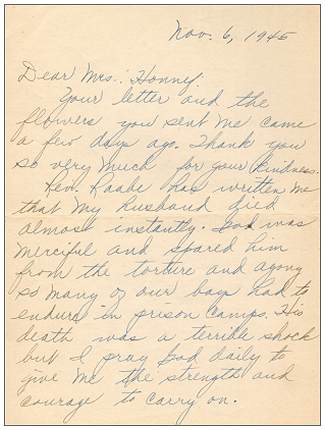 Nov. 6, 1945
Dear Mrs. Honney:
Your letter and the
flowers you sent me came
a few days ago. Thank you
so very much for your kindness.
Rev. Raabe has written me
that my husband died
almost instantly. God was
merciful and spared him
from the torture and agony
so many of our boys had to
endure in prison camps. His
death was a terrible shock
but I pray God daily to
give me the strength and
courage to carry on.